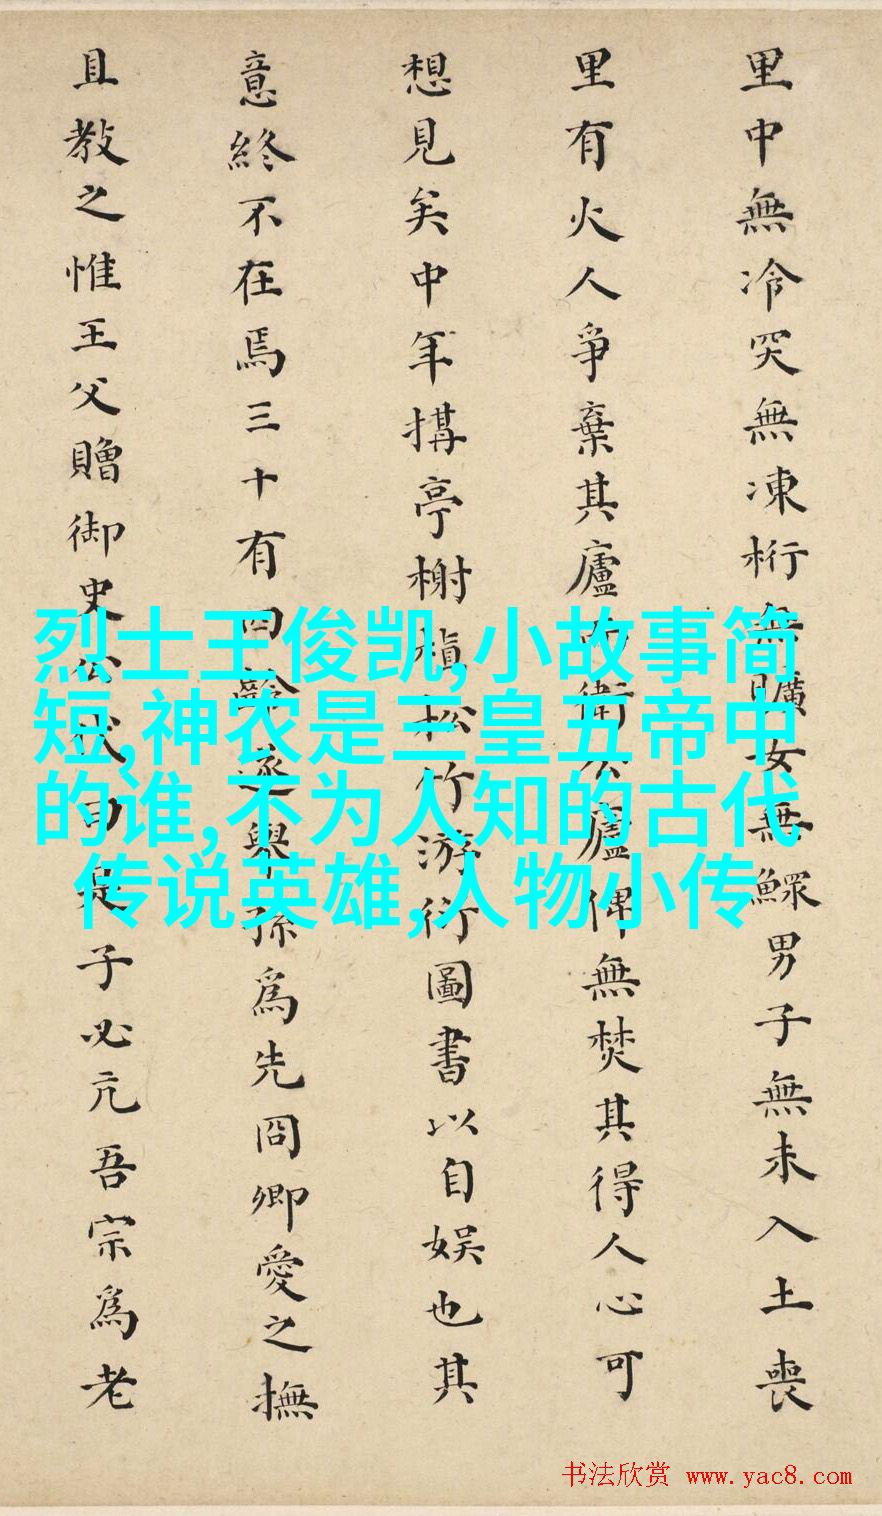 里中無冷突無凍桁無曠女無鰥男子無未入土喪
里有火人爭棄其廬而衛公廬俾無焚其得人心可
想見矣中年搆亭榭植松竹游衍圖書以自娛也其
意終不在焉三十有四齡逐舉孫為先冏卿愛之撫
且教之惟王父贈御史公代曰是子必亢吾宗為老
烈士王俊凯,小故事简
短,神农是三皇五帝中
的谁,不为人知的古代
传说英雄,人物小传
书法欣赏 www.yac8.com